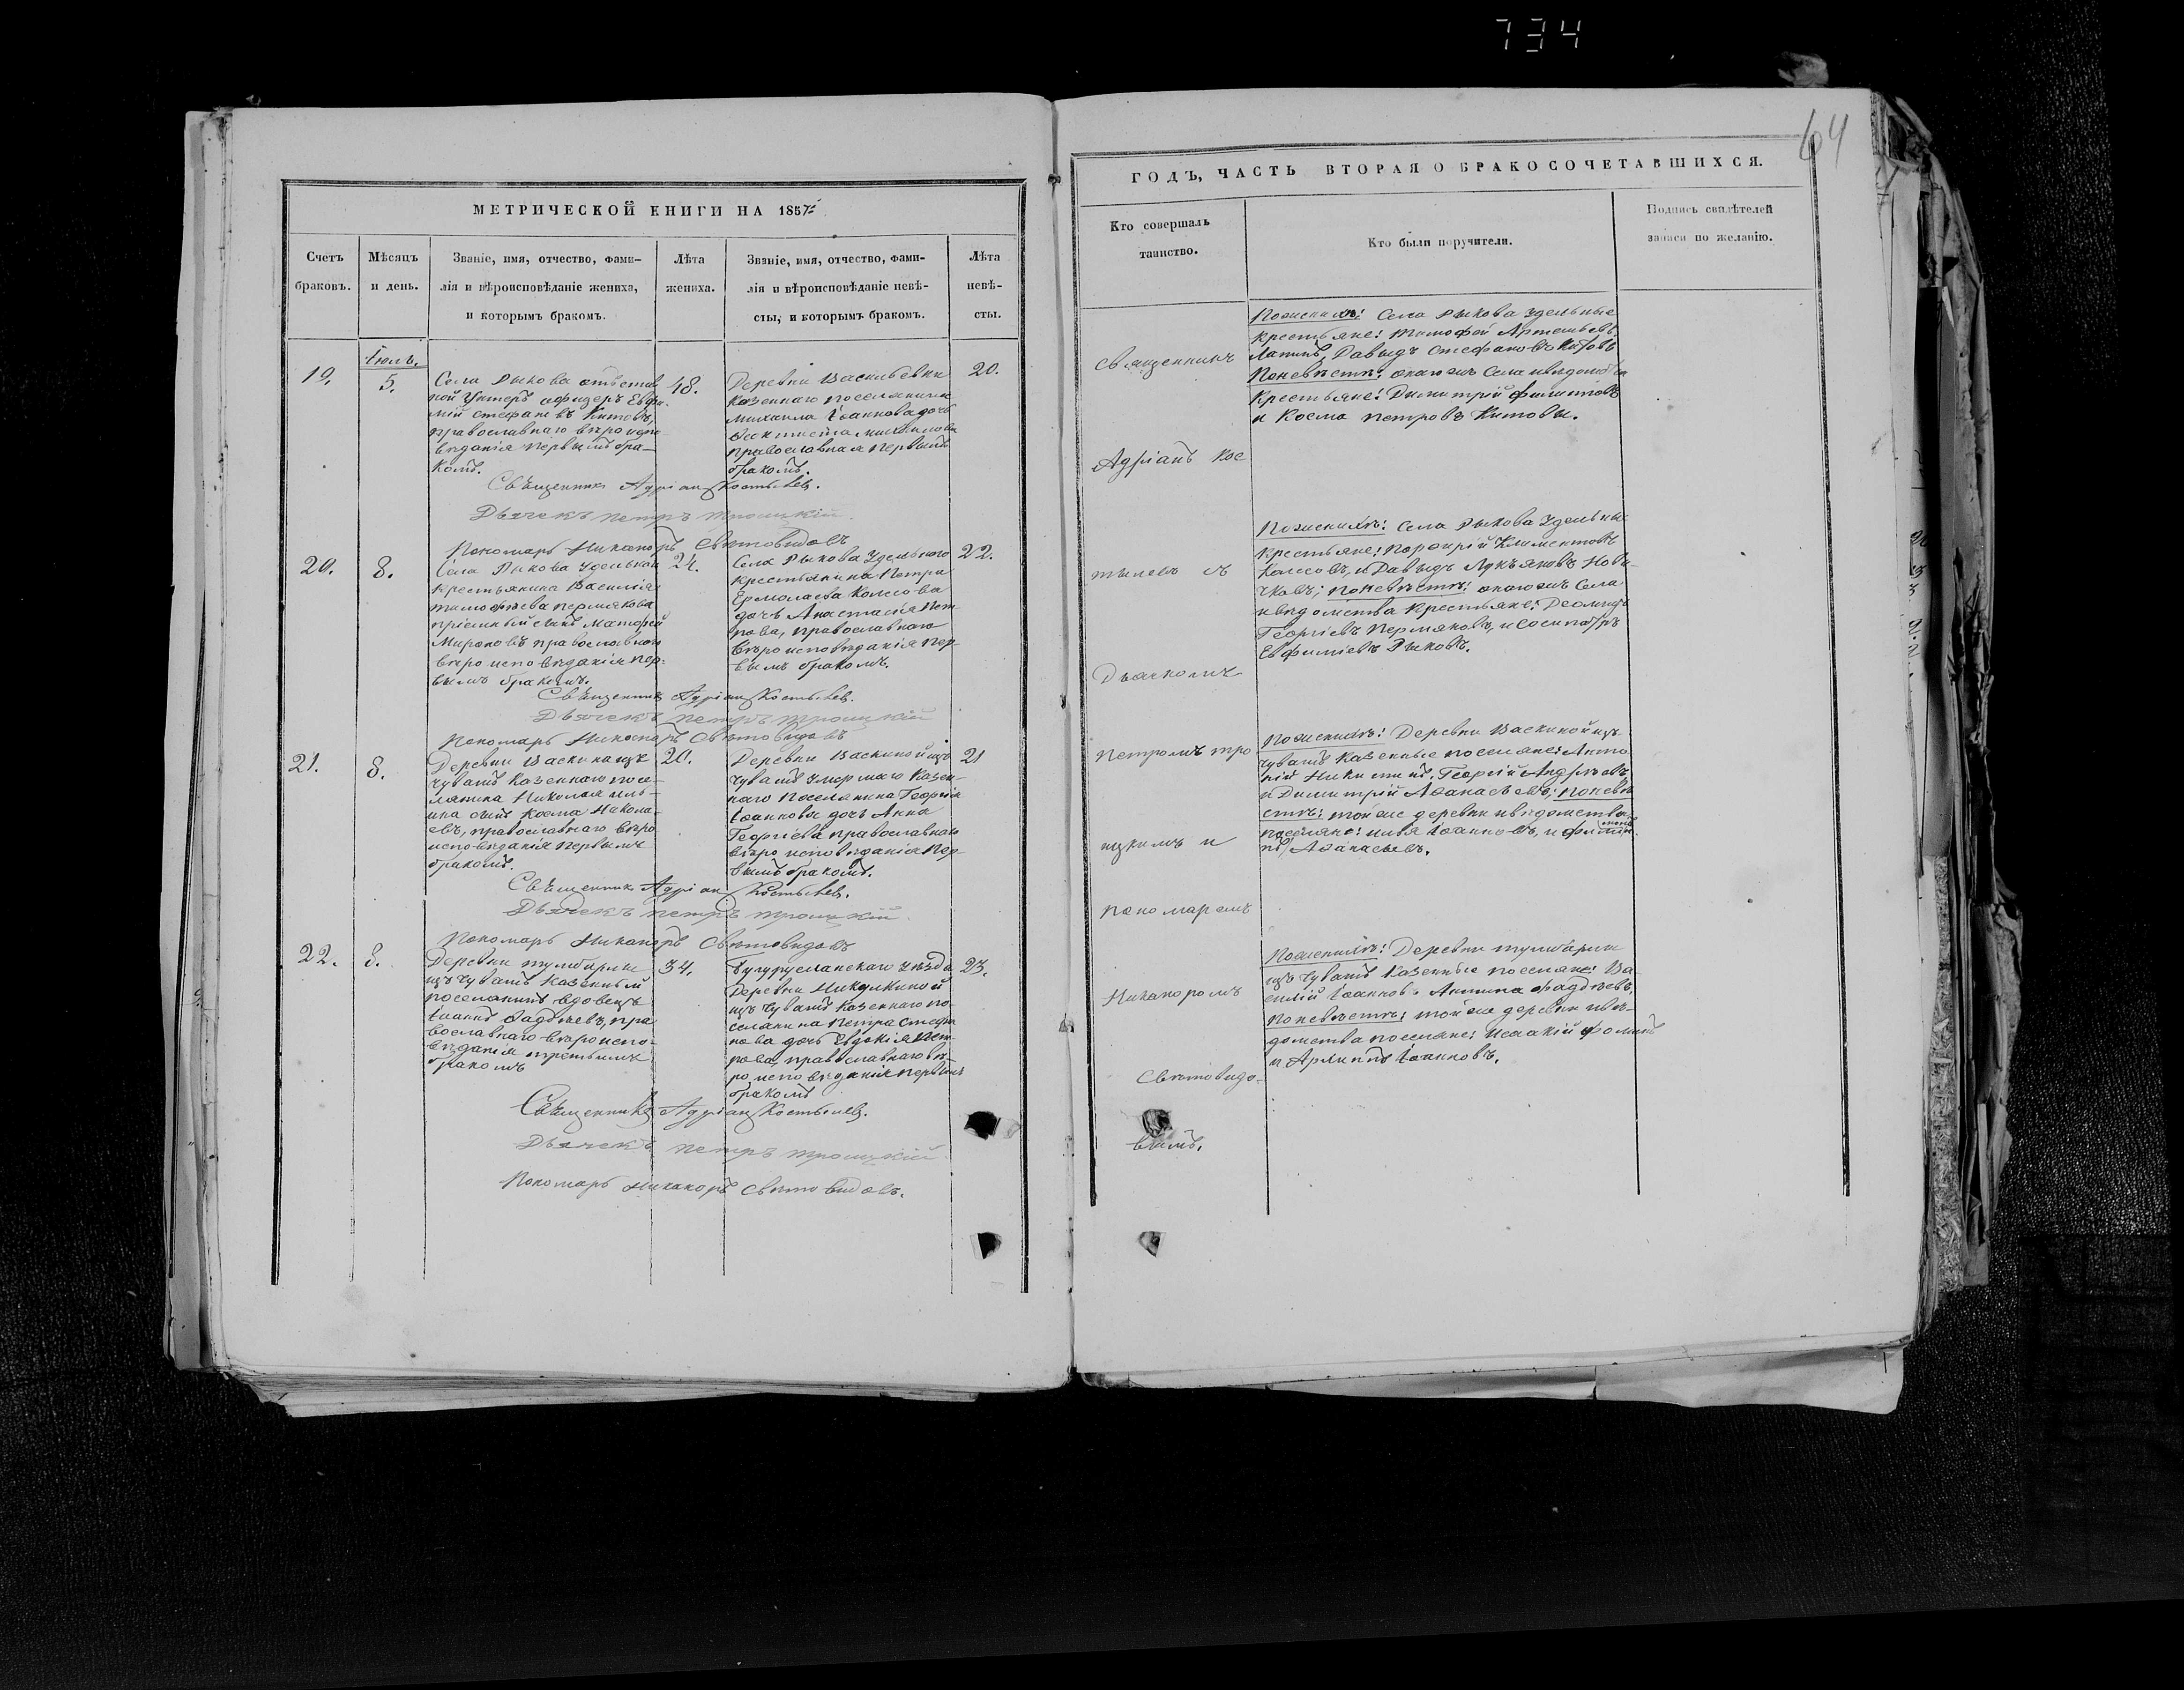 734
64
МЕТРИЧЕСКОЙ КНИГИ НА 1857
Счетъ браковъ.
Мѣсяцъ и день.
Званіе, имя, отчество, фами-
лія и вѣроисповѣданіе жениха,
и которымъ бракомъ.
Лѣта жениха.
Званіе, имя, отчество, фами-
лія и вѣроисповѣданіе невѣ-
сты, и которымъ бракомъ.
Лѣта невѣ-
сты.
Іюль.
19.
5.
Села Рыкова отставной
Унтеръ офицеръ Евфи-
мій Стефановъ Китовъ,
православнаго вѣроиспо-
вѣданія первымъ бра-
комъ.
48.
Деревни Васильевки
казеннаго поселянина
Михаила Іоаннова дочь
Михайлова
православная первымъ
бракомъ.
20.
Священникъ Адріанъ Костылевъ.
Дьячекъ Петръ Троицкій.
Пономарь Никаноръ Свѣтовидовъ
20.
8.
Села Рыкова удѣльнаго
крестьянина Василія
Тимофѣева Пермякова
пріемный сынъ Матфей
Мироновъ православнаго
вѣроисповѣданія пер-
вымъ бракомъ.
24.
Села Рыкова удѣльнаго
крестьянина Петра
Ермолаева Колесова
дочь Анастасія Пет-
рова, православнаго
вѣроисповѣданія пер-
вымъ бракомъ.
22.
Священникъ Адріанъ Костылевъ.
Дьячекъ Петръ Троицкій
Пономарь Никаноръ Свѣтовидовъ
21.
8.
Деревни Васькина изъ
чувашъ казеннаго посе-
лянина Николая Иль-
ина сынъ Косма Никола-
евъ, православнаго вѣро
исповѣданія первымъ
бракомъ.
20.
Деревни Васькиной изъ
чувашъ умершаго казен-
наго поселянина Георгія
Іоаннова дочь Анна
Георгіева православнаго
вѣроисповѣданія пер-
вымъ бракомъ.
21
Священникъ Адріанъ Костылевъ.
Дьячекъ Петръ Троицкій.
Пономарь Никаноръ Свѣтовидовъ
22.
8.
Деревни
изъ чувашъ казенный
поселянинъ вдовецъ
Іоаннъ Фадѣевъ, пра
вославнаго вѣроиспо-
вѣданія третьимъ
бракомъ
34.
Бугурусланскаго уѣзда
Деревни Николкиной
изъ чувашъ казеннаго по-
селянина Петра Стефа
нова дочь Евдокія Пет
рова, православнаго вѣ-
роисповѣданія первымъ
бракомъ
23.
Священникъ Адріанъ Костылевъ.
Дьячекъ Петръ Троицкій.
Пономарь Никаноръ Свѣтовидовъ.
ГОДЪ, ЧАСТЬ ВТОРАЯ О БРАКОСОЧЕТАВШИХСЯ.
Кто совершалъ
таинство.
Кто были поручители.
Подпись свидѣтелей
записи по желанію.
Священникъ
Адріанъ Кос
тылевъ съ
Дьячкомъ
Петромъ Тро
ицкимъ и
пономаремъ
Никаноромъ
Свѣтовидо-
вымъ.
По женихѣ: Села Рыкова удѣльные
крестьяне: Тимофей Артемьевъ
Лапинъ, Давыдъ Стефановъ Китовъ
По невѣстѣ: онаго жъ Села и вѣдомства
крестьяне: Димитрій Филиповъ
и Косма Петровъ Китовы.
По женихѣ: Села Рыкова удѣльные
крестьяне: Порфирій Климентовъ
Колесовъ, и Давыдъ Лукьяновъ Нови-
чковъ; по невѣстѣ: онаго жъ Села
и вѣдомства крестьяне: Леонидъ
Георгіевъ Пермяковъ, и Сосипатръ
Евфиміевъ Рыковъ.
По женихѣ: Деревни Васькиной изъ
чувашъ казенные поселяне: Анто
ній Никитинъ, Георгій Андреевъ
и Димитрій Аѳанасьевъ; по невѣ
стѣ: той же деревни и вѣдомства
поселяне: Илья Іоанновъ, и Филип
пъ Аѳанасьевъ.
По женихѣ: Деревни
изъ чувашъ казенные поселяне: Ва-
силій Іоанновъ Фадѣевъ,
по невѣстѣ: той же деревни и вѣ-
домства поселяне: Исакій Фоминъ
и Архипъ Іоанновъ.